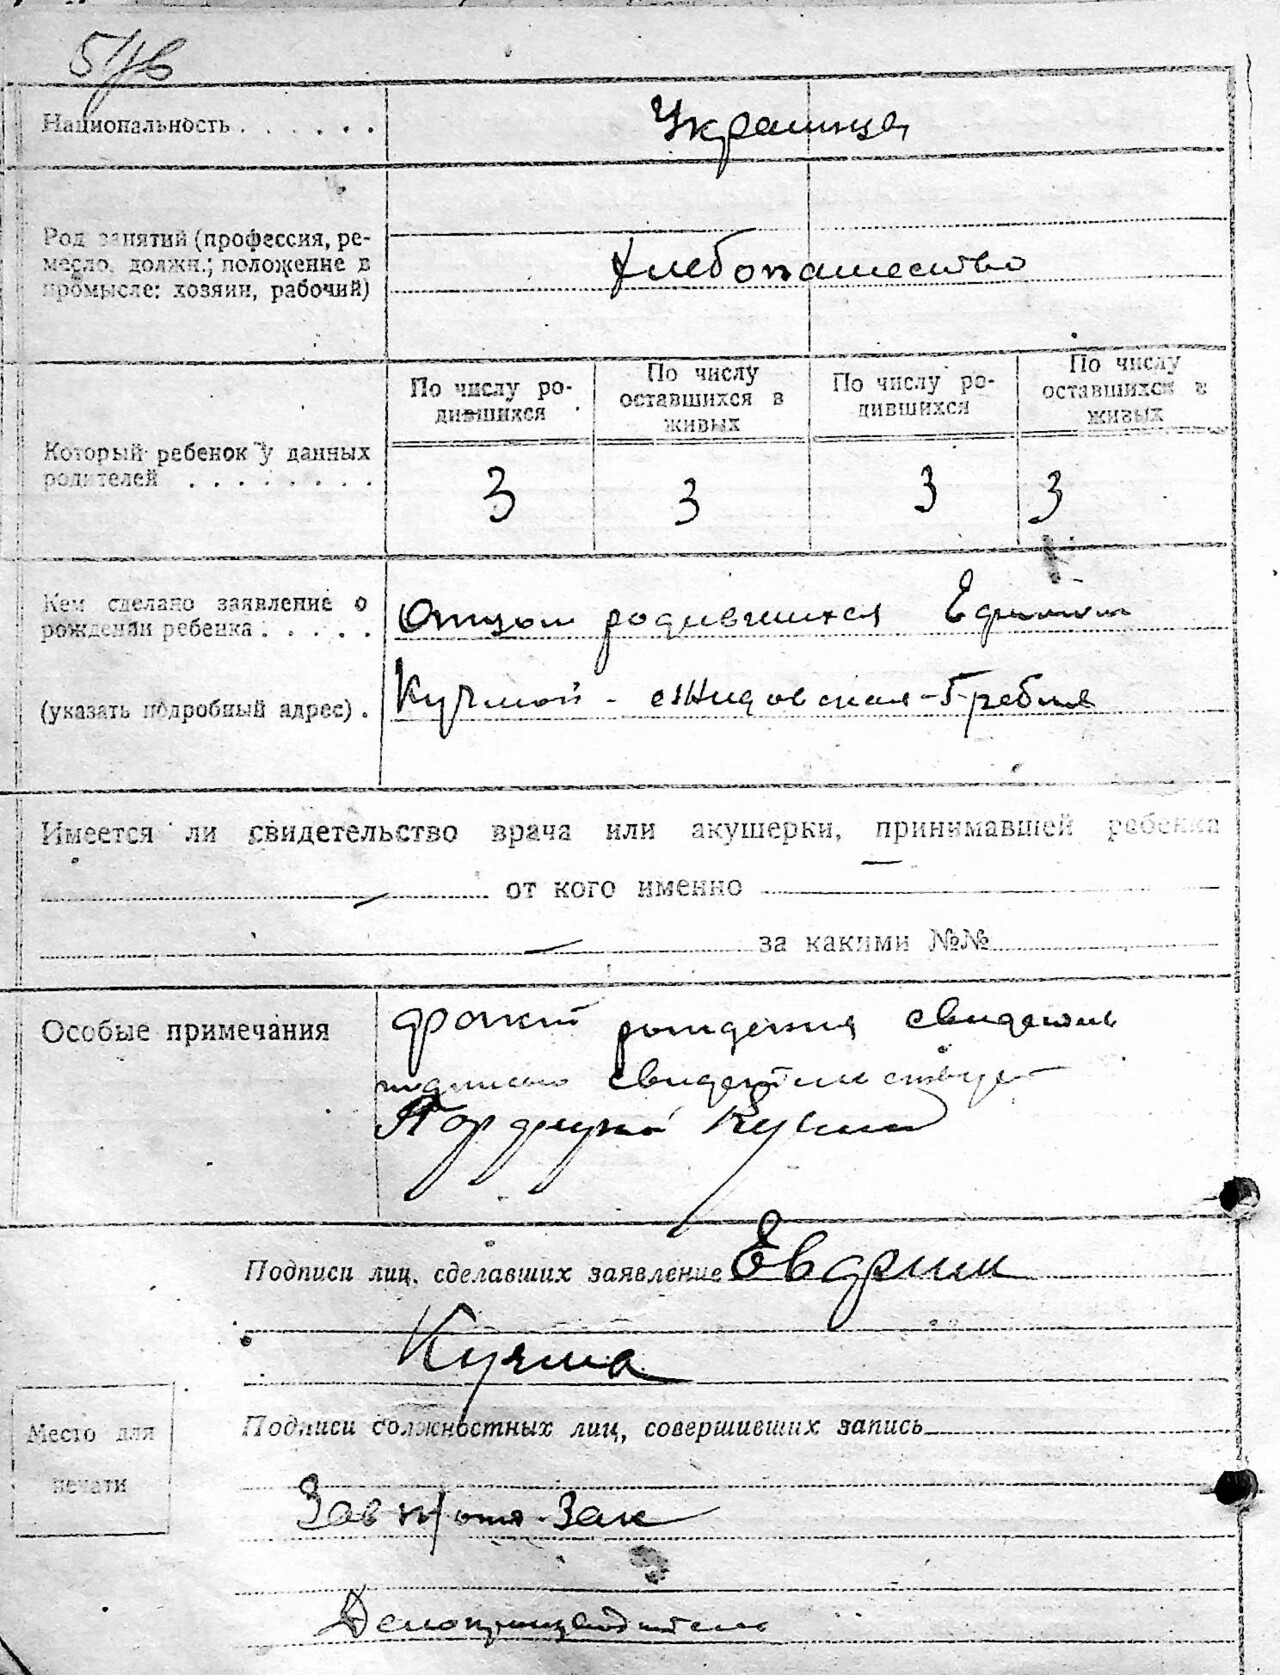 Национальность . . . . . .
Украинцы
Род занятий (профессия, ре-
месло, должн.; положение в
промысле: хозяин, рабочий)
Хлебопашество
По числу ро-
дившихся
По числу
оставшихся в
живых
По числу ро-
дившихся
По числу
оставшихся в
живых
Который ребенок у данных
родителей . . . . . . . .
3 3 3 3
Кем сделано заявление о
рождении ребенка . . . . .
Отцом родившихся
(указать подробный адрес) .
Кучмой - Жидовская-Гребля
Имеется ли свидетельство врача или акушерки, принимавшей ребенка
от кого именно
за какими №№
Особые примечания
факт рождения
подписью
Подписи лиц, сделавших заявление
Кучма
Подписи должностных лиц, совершивших запись
Место для
печати
Зав
Делопроизводитель